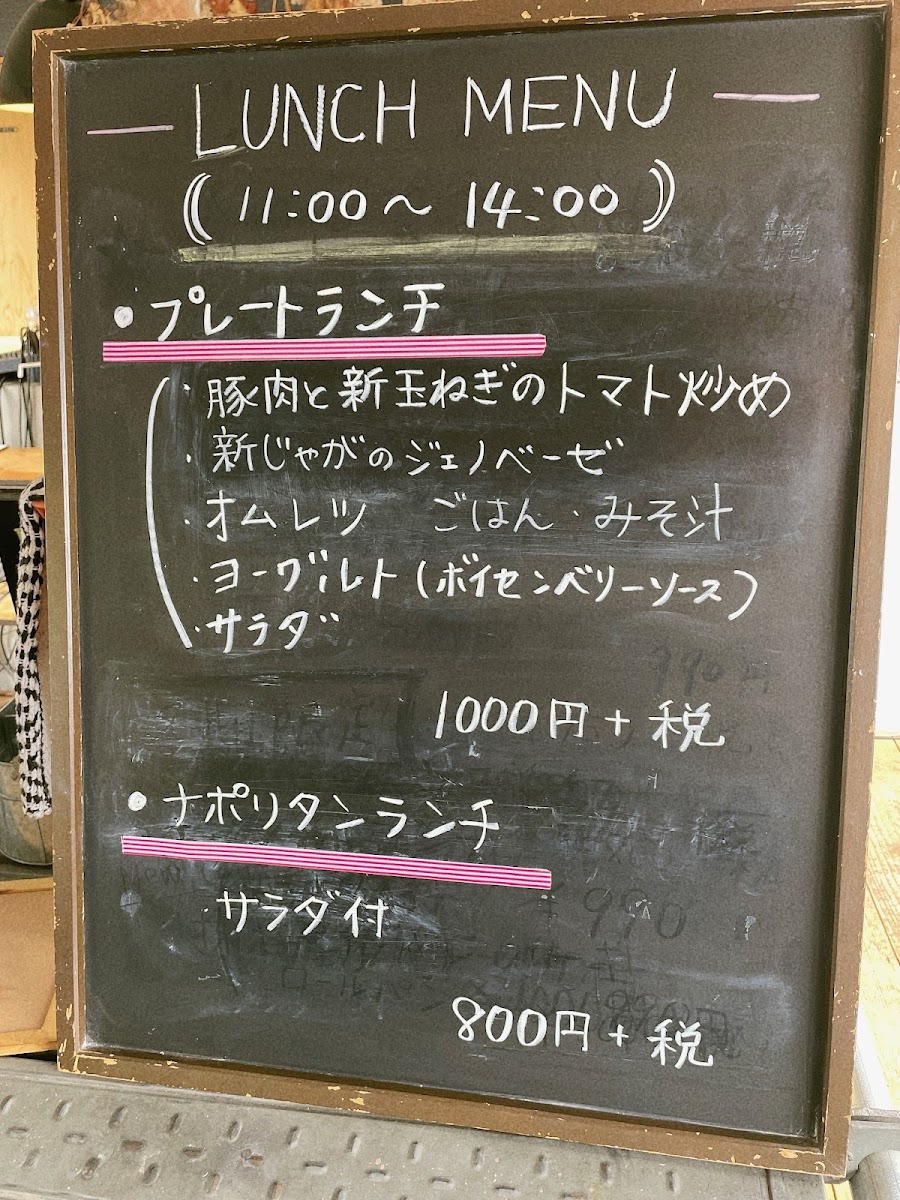 LUNCH MENU
(( 11:00~14:00 ))
• プレートランチ
・豚肉と新玉ねぎのトマト炒め
・新じゃがのジェノベーゼ
・オムレツ ごはん・みそ汁
・ヨーグルト(ボイセンベリーソース)
・サラダ
1000円+税
• ナポリタンランチ
・サラダ付
800円+税